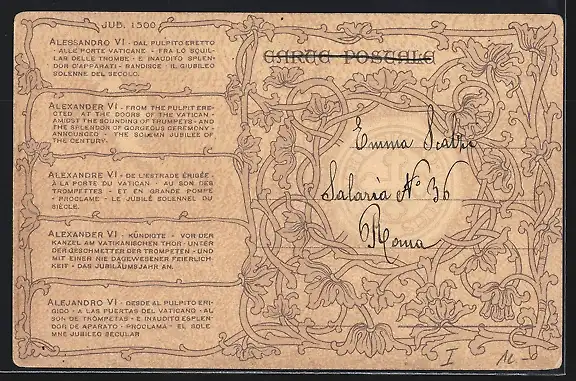 JUB. 1500
ALESSANDRO VI - DAL PULPITO ERETTO
- ALLE PORTE VATICANE - FRA LO SQUIL
LAR DELLE TROMBE - E INAUDITO SPLEN-
DOR D'APPARATI - BANDISCE - IL GIUBILEO
SOLENNE DEL SECOLO.
ALEXANDER VI - FROM THE PULPIT ERE-
CTED AT THE DOORS OF THE VATICAN -
AMIDST THE SOUNDING OF TRUMPETS - AND
THE SPLENDOR OF GORGEOUS CEREMONY -
ANNOUNCED - THE SOLEMN JUBILEE OF
THE CENTURY.
ALEXANDRE VI - DE L'ESTRADE ÉRIGÉE -
À LA PORTE DU VATICAN - AU SON DES
TROMPETTES - ET EN GRANDE POMPE
- PROCLAME - LE JUBILÉ SOLENNEL DU
SIÈCLE.
ALEXANDER VI - KÜNDIGTE - VOR DER
KANZEL AM VATIKANISCHEN THOR - UNTER
DER GESCHMETTER DER TROMPETEN - UND
MIT EINER NIE DAGEWESENER FEIERLICH-
KEIT - DAS JUBILÄUMSJAHR AN.
ALEJANDRO VI - DESDE AL PULPITO ERI-
GIDO - A LAS PUERTAS DEL VATICANO - AL
SON DE TROMPETAS - E INAUDITO ESPLEN-
DOR DE APARATO - PROCLAMA - EL SOLE
MNE JUBILEO SECULAR
CARTE POSTALE
Emma
Salaria N° 36
Roma
I